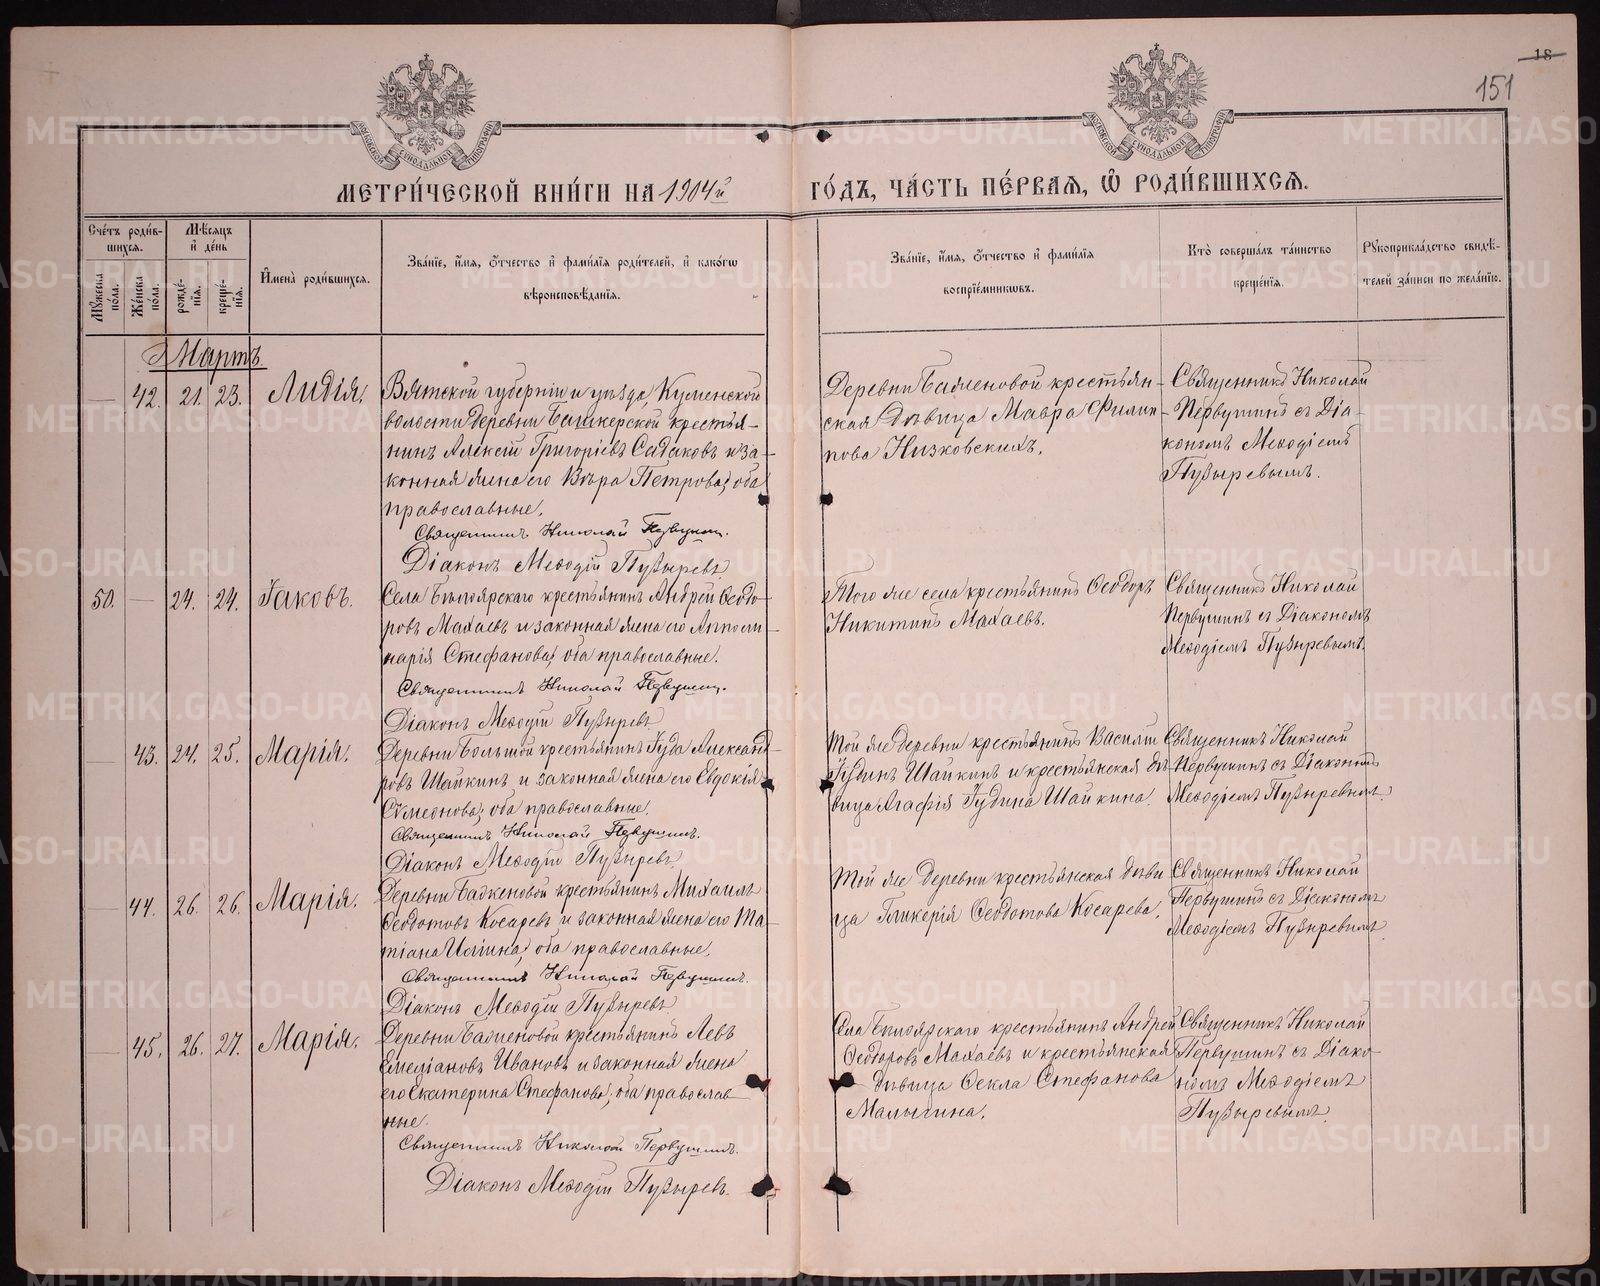 18
151
МОСКОВСКОЙ СѴНОДАЛЬНОЙ ТИПОГРАФІИ
МОСКОВСКОЙ СѴНОДАЛЬНОЙ ТИПОГРАФІИ
МЕТРИ́ЧЕСКОЙ КНИ́ГИ НА 1904й ГО́ДЪ, ЧА́СТЬ ПЕ́РВАЯ, Ѡ҆ РОДИ́ВШИХСЯ.
Сче́тъ роди́вшихся.
Мꙋжеска по́ла.
Же́нска по́ла.
Мѣ́сяцъ и҆ де́нь
рожде́нїя.
креще́нїя.
И҆мена̀ роди́вшихся.
Зва́нїе, и҆́мя, ѻ҆́тчество и҆ фами́лїя роди́телей, и҆ како́гѡ
вѣроисповѣ́данїя.
Зва́нїе, и҆́мя, ѻ҆́тчество и҆ фами́лїя
воспрїе́мникѡвъ.
Кто̀ соверша́лъ та́инство
креще́нїя.
Рꙋкоприкла́дство свидѣ́-
телей за́писи по жела́нїю.
Мартъ
— 42. 21. 23. Лидія.
Вятской губерніи и уѣзда, Куменской
волости деревни Башкерской крестья-
нинъ Алексій Григоріевъ Садаковъ и за-
конная жена его Вѣра Петрова; оба
православные.
Священникъ Николай Первушин.
Діаконъ Меѳодій Пузыревъ
Деревни Баженовой крестьян-
ская дѣвица Мавра Филип-
пова Низковскихъ.
Священникъ Николай
Первушинъ съ Діа-
кономъ Меѳодіемъ
Пузыревымъ.
50. — 24. 24. Іаковъ.
Села Бѣлоярскаго крестьянинъ Андрей Ѳеодо-
ровъ Махаевъ и законная жена его Апполи-
нарія Стефанова; оба православные.
Священникъ Николай Первушин.
Діаконъ Меѳодій Пузыревъ
Того же села крестьянинъ Ѳеодоръ
Никитинъ Махаевъ.
Священникъ Николай
Первушинъ съ Діакономъ
Меѳодіемъ Пузыревымъ.
— 43. 24. 25. Марія.
Деревни Большой крестьянинъ Іуда Александ-
ровъ Шайкинъ и законная жена его Евдокія
Сѵмеонова; оба православные.
Священникъ Николай Первушинъ.
Діаконъ Меѳодій Пузыревъ
Той же деревни крестьянинъ Василій
Іудинъ Шайкинъ и крестьянская дѣ-
вица Агафія Іудина Шайкина.
Священникъ Николай
Первушинъ съ Діакономъ
Меѳодіемъ Пузыревымъ.
— 44. 26. 26. Марія.
Деревни Баженовой крестьянинъ Михаилъ
Ѳеодотовъ Косаревъ и законная жена его Та-
тіана Иліина; оба православные.
Священникъ Николай Первушинъ.
Діаконъ Меѳодій Пузыревъ
Той же деревни крестьянская дѣви-
ца Гликерія Ѳеодотова Косарева.
Священникъ Николай
Первушинъ съ Діакономъ
Меѳодіемъ Пузыревымъ
— 45. 26. 27. Марія.
Деревни Баженовой крестьянинъ Левъ
Емеліановъ Ивановъ и законная жена
его Екатерина Стефанова; оба православ
ные.
Священникъ Николай Первушинъ.
Діаконъ Меѳодій Пузыревъ.
Села Бѣлоярскаго крестьянинъ Андрей
Ѳеодоровъ Махаевъ и крестьянская
дѣвица Ѳекла Стефанова
Малыгина.
Священникъ Николай
Первушинъ съ Діако-
номъ Меѳодіемъ
Пузыревымъ
METRIKI.GASO-URAL.RU